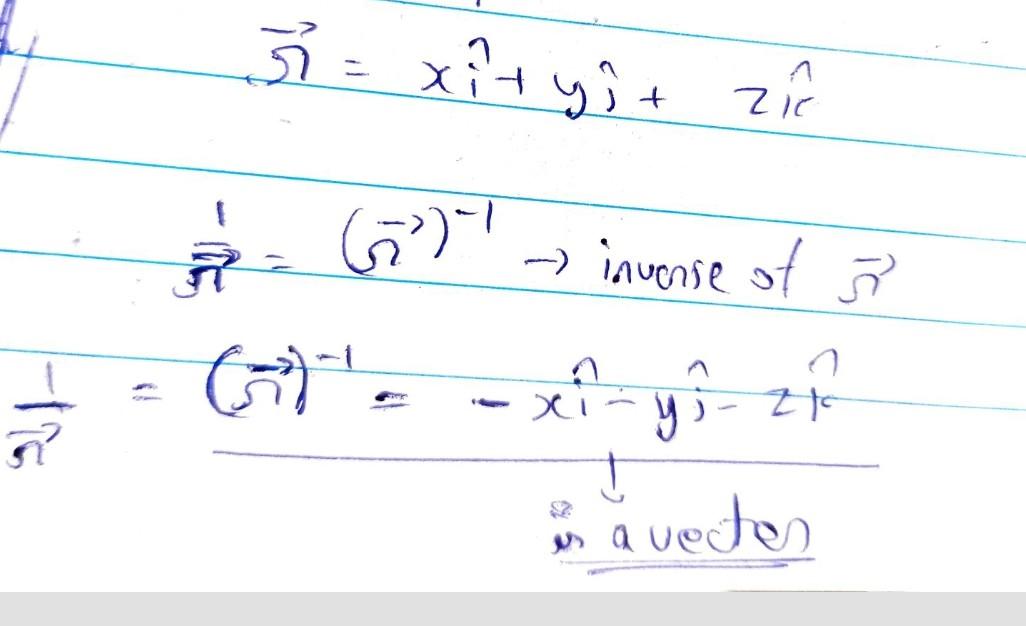 r⃗ = xî + yĵ + zk̂
1/r⃗ = (r⃗)⁻¹ → inverse of r⃗
1/r⃗ = (r⃗)⁻¹ = - xî - yĵ - zk̂
↓
is a vector